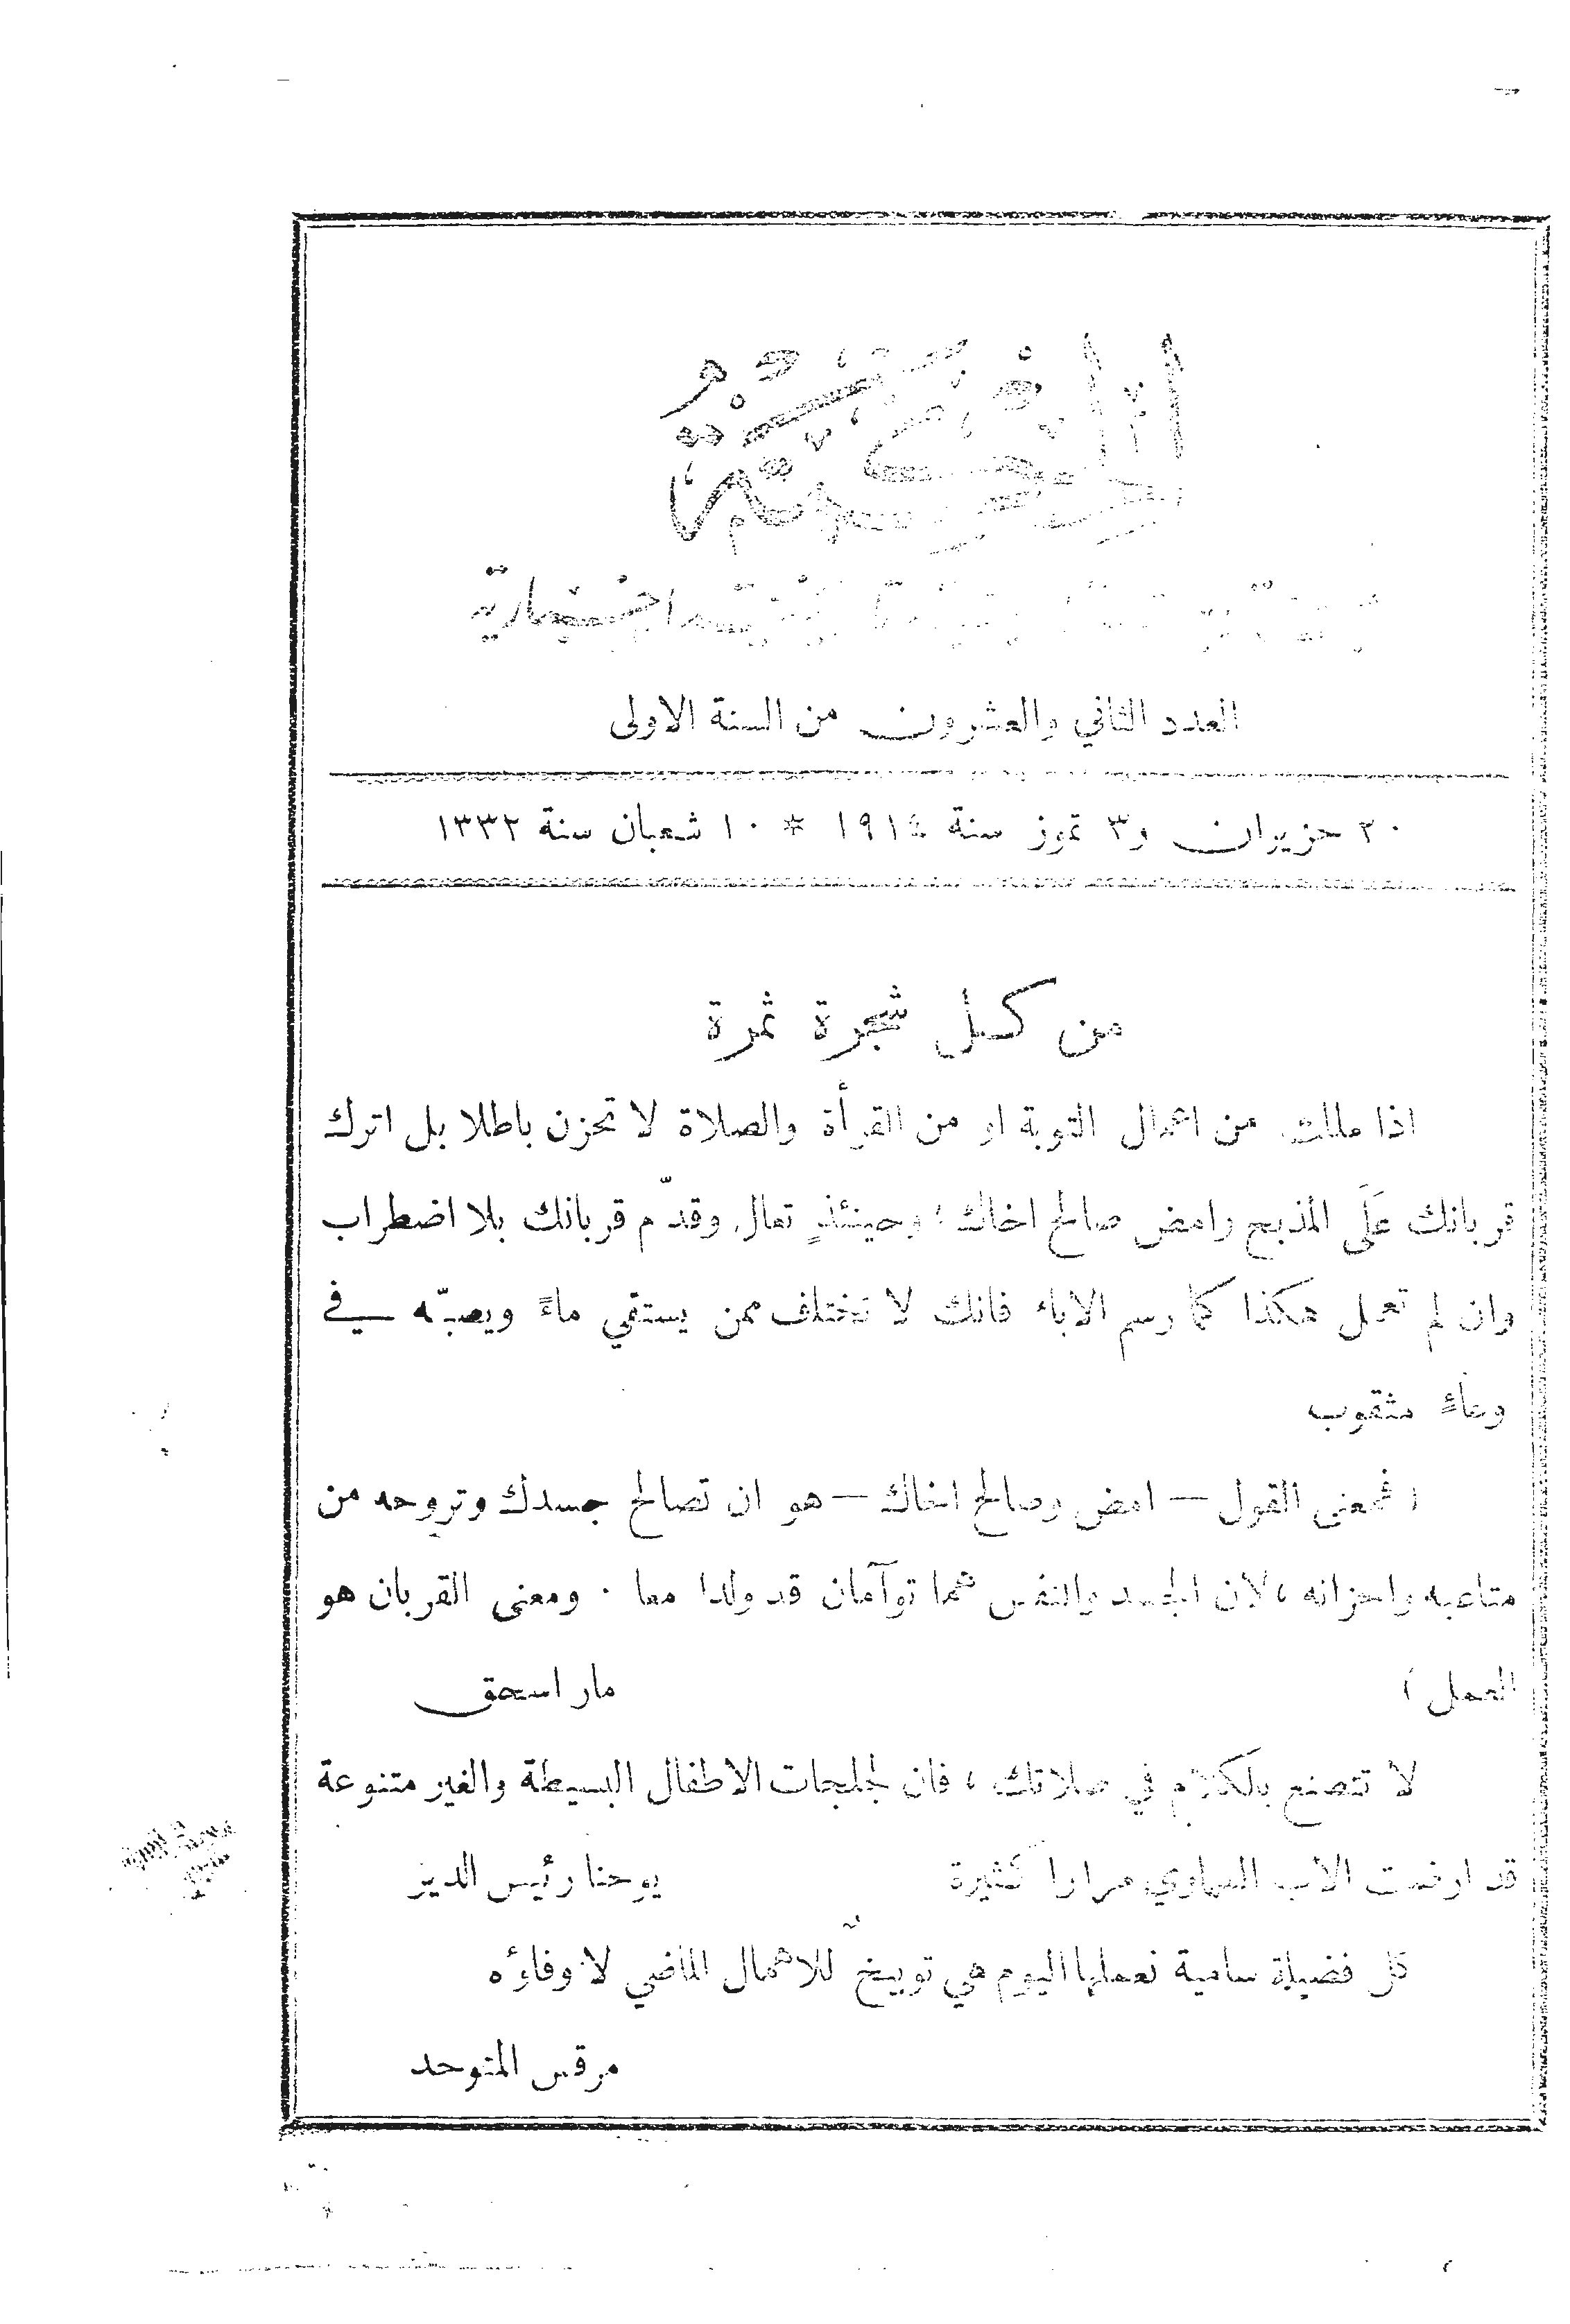 الحكمة
العدد الثاني والعشرون من السنة الاولى
٢٠ حزيران و٣ تموز سنة ١٩١٤ * ١٠ شعبان سنة ١٣٣٢
من كل شجرة ثمرة
اذا مللت من اعمال التوبة او من القرأة والصلاة لا تحزن باطلا بل اترك
قربانك على المذبح وامض صالح اخاك ؛ وحينئذٍ تعال وقدّم قربانك بلا اضطراب
وان لم تعمل هكذا كما رسم الاباء فانك لا تختلف ممن يستقي ماءً ويصبّه في
وعاءً مثقوب
( فمعنى القول — امض وصالح اخاك — هو ان تصالح جسدك وتروحه من
متاعبه واحزانه ، لان الجسد والنفس هما توآمان قد ولدا معا . ومعنى القربان هو
العمل )
مار اسحق
لا تتصنع بالكلام في صلاتك ، فان لجلجات الاطفال البسيطة والغير متنوعة
قد ارضت الاب السماوي مرارا كثيرة
يوحنا رئيس الدير
كل فضيلة سامية نعملها اليوم هي توبيخ للاهمال الماضي لا وفاؤه
مرقس المتوحد